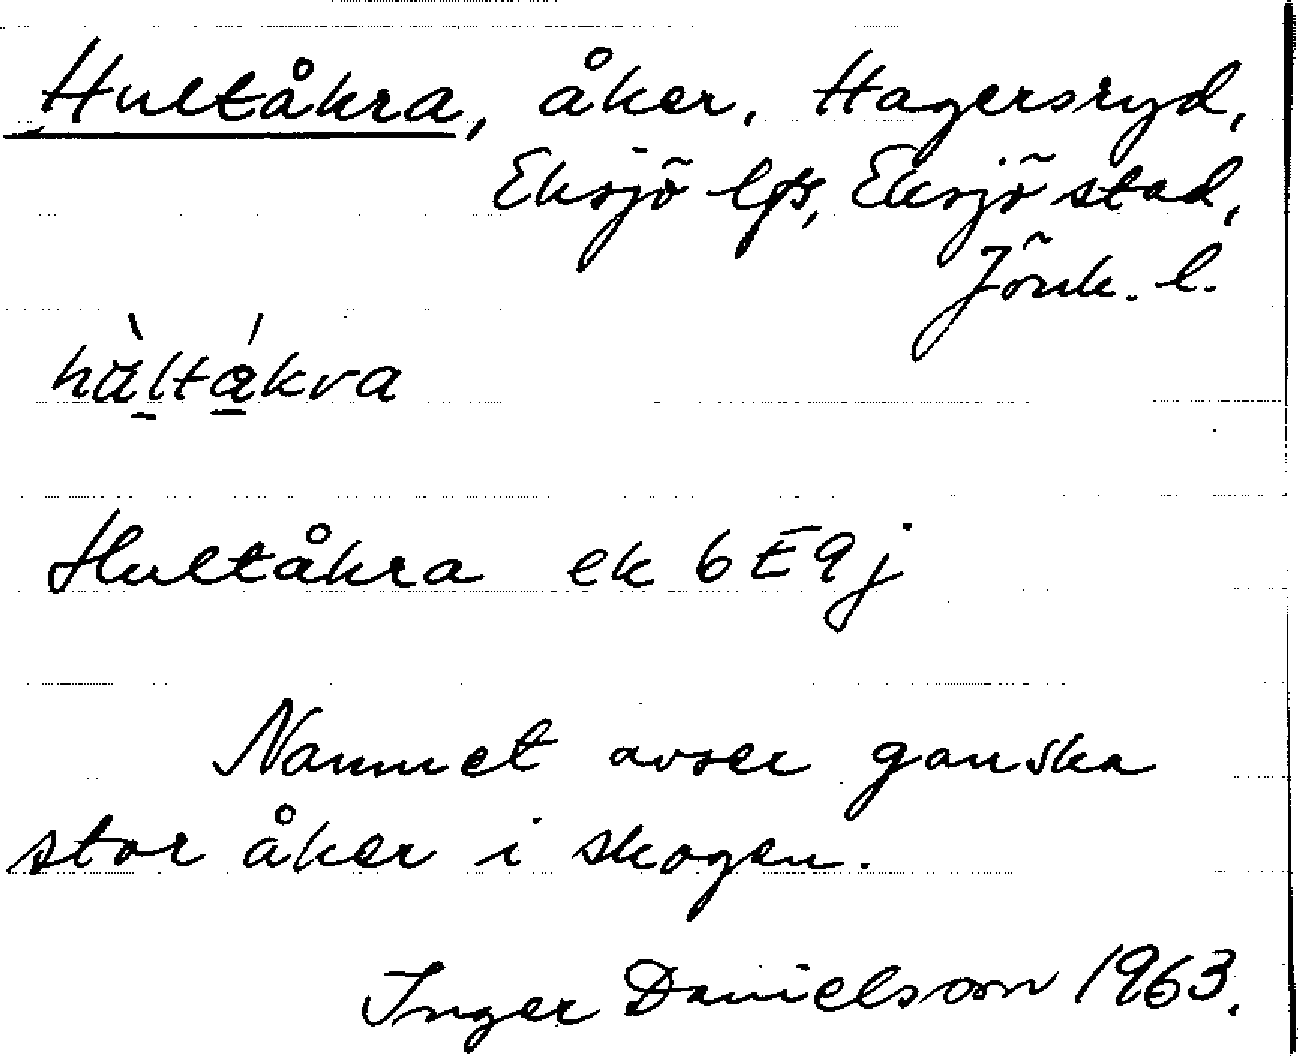 Hultåkra, åker, Hagersryd,
Eksjö lfs, Eksjö stad,
Jönk. l.
hàltákra
Hultåkra ek 6E9j
Namnet avser ganska
stor åker i skogen.
Inger Danielsson 1963.